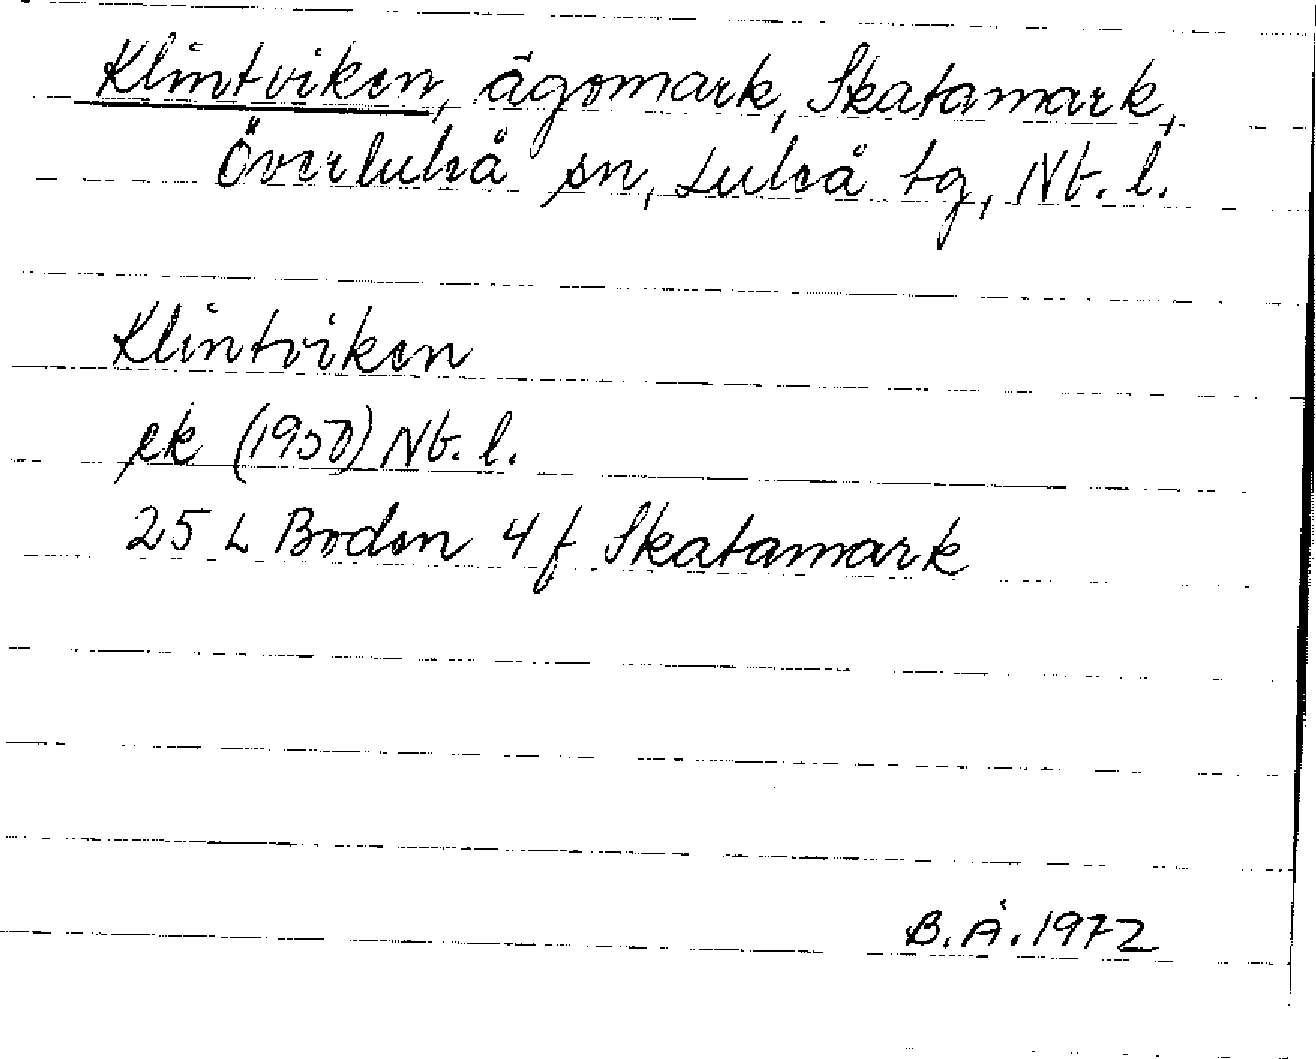 Klintviken, ägomark, Skatamark,
Överluleå sn, Luleå tg, Nb. l.
Klintviken
ek (1950) Nb. l.
25 L Boden 4 f Skatamark
B.Å. 1972